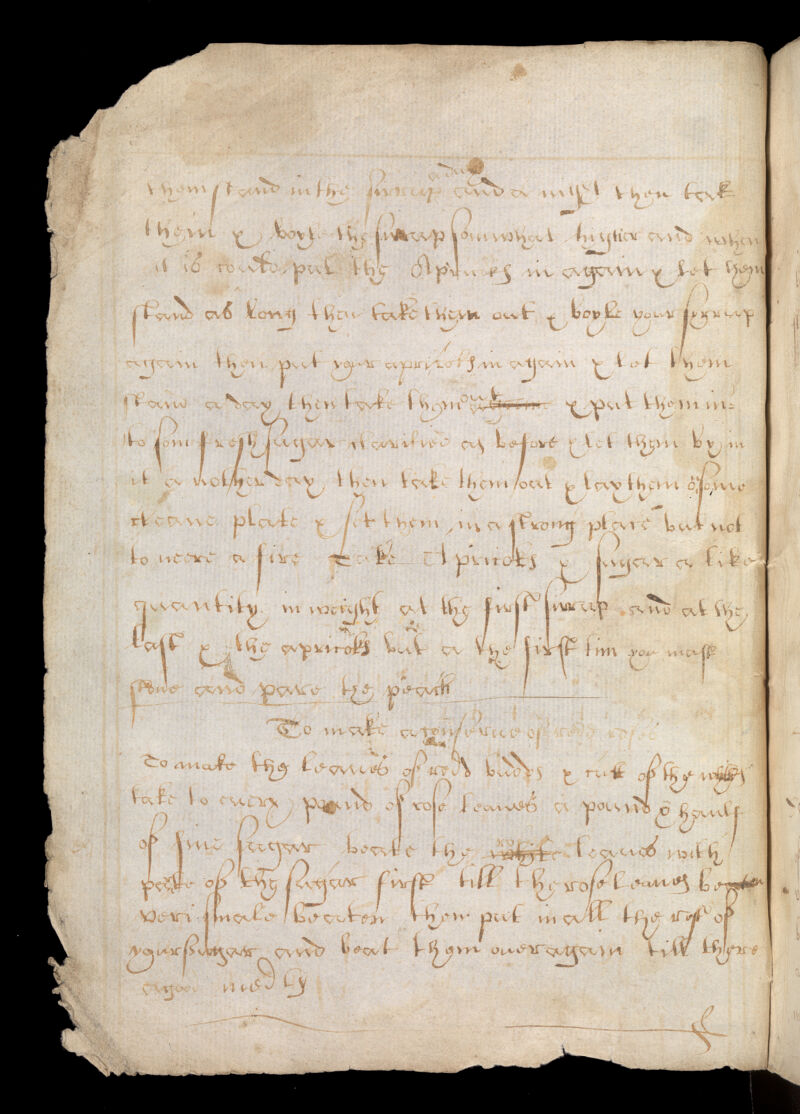 a day
them stand in the sirrup and a night then tak
them & boyle the sirrap somwhat higher and when
it is could put the Apricoks in again & let them
stand as long then take them out & boyle your syrrup
again then put your apricoks in again & let them
stand a day then take them out & put them in=
to som fresh sugar clarified as before & let them ly in
it a nother day then take them out & lay them o some
cleane plate & set them in a strong place but not
to neere a fire Take Apricoks & sugar a like
quantity in weight at the first sirrap and at the
last & the apricoks but a the first tim you must
stone and pare the peach
To make a conserue of redd roses
To make the leaues of redd budds & cut of the whits
take to euery pound of rose leaues a pound & haulf
of fine sugar beate the leaues with
of the sugar first till the rose leaues beaten
veri smale beaten then put in all the rest of
your sugar and beat them ouer again till there
medly